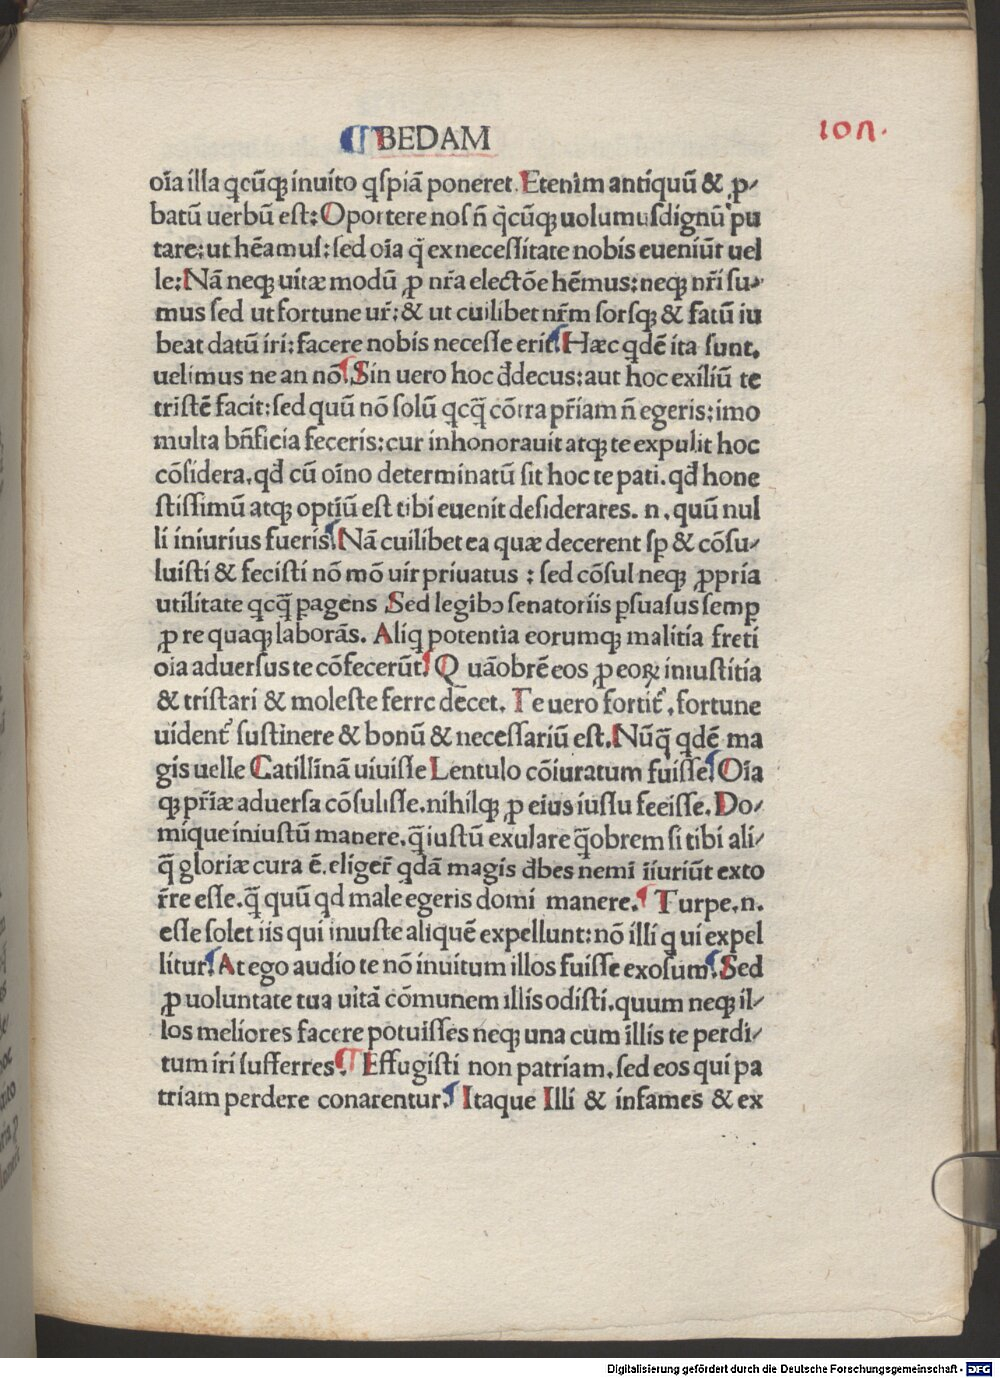 ¶BEDAM
107.
oīa illa qcūqꝫ inuito qſpiā poneret. Etenim antiquū & ꝓ⸗
batū uerbū eſt: Oportere noſ n̄ qcūqꝫ uolumuſ dignū pu
tare: ut hēamuſ: ſed oīa q̄ ex neceſſitate nobis eueniūt uel
le: Nā neqꝫ uitæ modū ꝓ nr̄a electōe hēmus: neqꝫ nr̄i ſu⸗
mus ſed ut fortune ur̄: & ut cuilibet nr̄m ſorſqꝫ & fatū iu
beat datū iri: facere nobis neceſſe erit. ¶Hæc qdē ita ſunt.
uelimus ne an nō. ¶Sin uero hoc đdecus: aut hoc exiliū te
triſtē facit: ſed quū nō ſolū qcq̄ cōtra pr̄iam n̄ egeris: imo
multa bn̄ficia feceris: cur inhonorauit atqꝫ te expulit hoc
cōſidera. qđ cū oīno determinatū ſit hoc te pati. qđ hone
ſtiſſimū atqꝫ optiū eſt tibi euenit deſiderares. n. quū nul
li iniurius fueris. ¶Nā cuilibet ea quæ decerent ſꝑ & cōſu⸗
luiſti & feciſti nō mō uir priuatus : ſed cōſul neqꝫ ꝓpria
utilitate qcq̄ ꝑagens Sed legibɔ ſenatoriis ꝑſuaſus ſemꝑ
ꝓ re quaqꝫ laborās. Aliq potentia eorumqꝫ malitia freti
oīa aduerſus te cōfecerūt. ¶Q uāobrē eos ꝓ eoꝝ iniuſtitia
& triſtari & moleſte ferre dēcet. Te uero fortit᷑, fortune
uident᷑ ſuſtinere & bonū & neceſſariū eſt. Nūq̄ qdē ma
gis uelle Catillinā uiuiſſe Lentulo cōiuratum fuiſſe. ¶Oīa
qꝫ pr̄iæ aduerſa cōſuliſſe. nihilqꝫ ꝓ eius iuſſu feeiſſe. Do⸗
mique iniuſtū manere. q̄ iuſtū exulare q̄obrem ſi tibi ali⸗
q̄ gloriæ cura ē. eliger̄ qdā magis đbes nemi iīuriūt exto
r̄re eſſe. q̄ quū qd male egeris domi manere. ¶ Turpe. n.
eſſe ſolet iis qui iniuſte aliquē expellunt: nō illi q ui expel
litur. ¶At ego audio te nō inuitum illos fuiſſe exoſum. ¶Sed
ꝓ uoluntate tua uitā cōmunem illis odiſti. quum neqꝫ il⸗
los meliores facere potuiſſes neqꝫ una cum illis te perdi⸗
tum iri ſufferres. ¶ Effugiſti non patriam. ſed eos qui pa
triam perdere conarentur. ¶ Itaque Illi & infames & ex
Digitalisierung gefördert durch die Deutsche Forschungsgemeinschaft - DFG